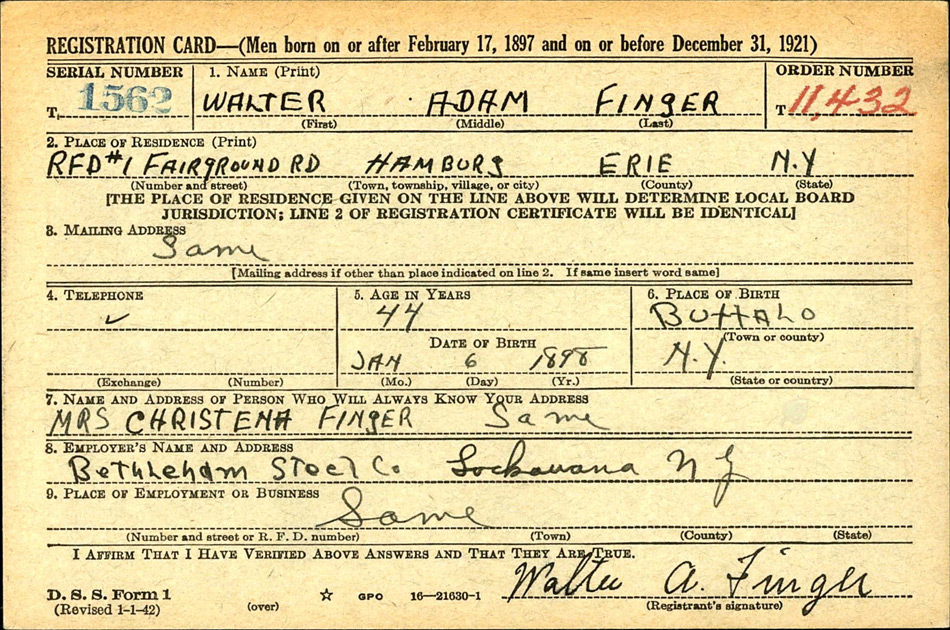 REGISTRATION CARD—(Men born on or after February 17, 1897 and on or before December 31, 1921)
SERIAL NUMBER 1. NAME (Print) ORDER NUMBER
T 1562 WALTER ADAM FINGER T 11,432
(First) (Middle) (Last)
2. PLACE OF RESIDENCE (Print)
RFD #1 FAIRGROUND RD HAMBURG ERIE N.Y
(Number and street) (Town, township, village, or city) (County) (State)
[THE PLACE OF RESIDENCE GIVEN ON THE LINE ABOVE WILL DETERMINE LOCAL BOARD
JURISDICTION; LINE 2 OF REGISTRATION CERTIFICATE WILL BE IDENTICAL]
3. MAILING ADDRESS
Same
[Mailing address if other than place indicated on line 2. If same insert word same]
4. TELEPHONE 5. AGE IN YEARS 6. PLACE OF BIRTH
44 BUFFALO
DATE OF BIRTH (Town or county)
JAN 6 1898 N.Y.
(Exchange) (Number) (Mo.) (Day) (Yr.) (State or country)
7. NAME AND ADDRESS OF PERSON WHO WILL ALWAYS KNOW YOUR ADDRESS
MRS CHRISTENA FINGER Same
8. EMPLOYER'S NAME AND ADDRESS
Bethleham Steel Co. Lockawana N Y
9. PLACE OF EMPLOYMENT OR BUSINESS
Same
(Number and street or R. F. D. number) (Town) (County) (State)
I AFFIRM THAT I HAVE VERIFIED ABOVE ANSWERS AND THAT THEY ARE TRUE.
Walter A. Finger
D. S. S. Form 1
(Revised 1-1-42) (over) ☆ GPO 16—21630-1 (Registrant's signature)